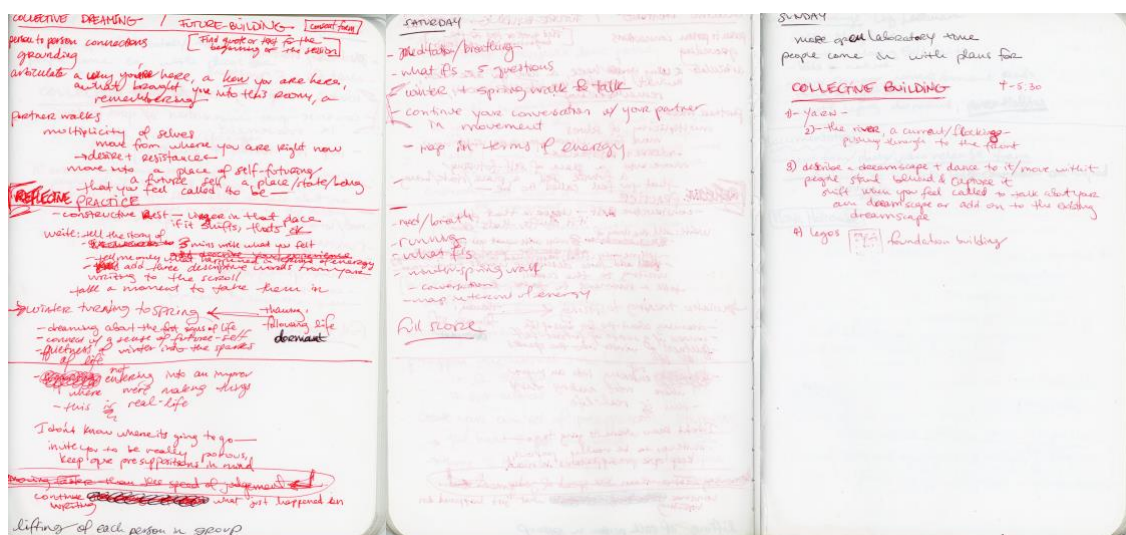 COLLECTIVE DREAMING / FUTURE-BUILDING [consent form]
person to person connections
[Find quote or text for the
beginning of the session]
grounding
articulate a why you're here, a how you are here,
a what brought you into this room, a
remembering
partner walks
multiplicity of selves
move from where you are right now
→ desire + resistances
move into a place of self-futuring
a future self a place/state/being
- that you feel called to be
REFLECTIVE PRACTICE
- constructive rest — in that place
if it shifts, that's ok
write: tell the story of
3 mins write what you felt
- tell me in terms of energy
- add three descriptive words from your
writing to the scroll
- take a moment to take them in
→ winter turning to spring ← thawing,
- dreaming about the first signs of life following life
- connect w/ a sense of future-self dormant
- quietness of winter into the sparks
of life
- not entering into an improv
where we're making things
- this is real-life
I don't know where it's going to go —
invite you to be really porous,
keep presuppositions in mind
moving faster than speed of judgement
continue what just happened in
writing
lifting of each person in group
SATURDAY
- meditation/breathing
- what ifs 5 questions
- winter to spring walk & talk
- continue your conversation w/ your partner
in movement
- map in terms of energy
- med/breath
- running
- what ifs
- winter-spring walk
- conversation
- map in terms of energy
Full score
SUNDAY
more open laboratory time
people come in with plans for
COLLECTIVE BUILDING
- 5:30
1) - YARN -
2) - the river, a current/flocking -
passing through to the front
3) describe a dreamscape + dance to it/move with it
people stand behind & capture it
shift when you feel called to talk about your
own dreamscape or add on to the existing
dreamscape
4) legos foundation building